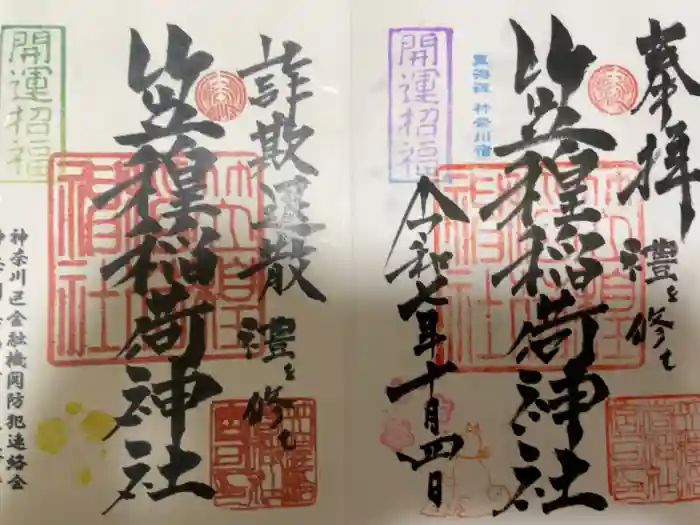 奉拝
禮を修む
笠䅣稲荷神社
令和七年十月四日
東海道 神奈川宿
開運招福
詐欺退散
禮を修む
笠䅣稲荷神社
開運招福
神奈川区金融機関防犯連絡会